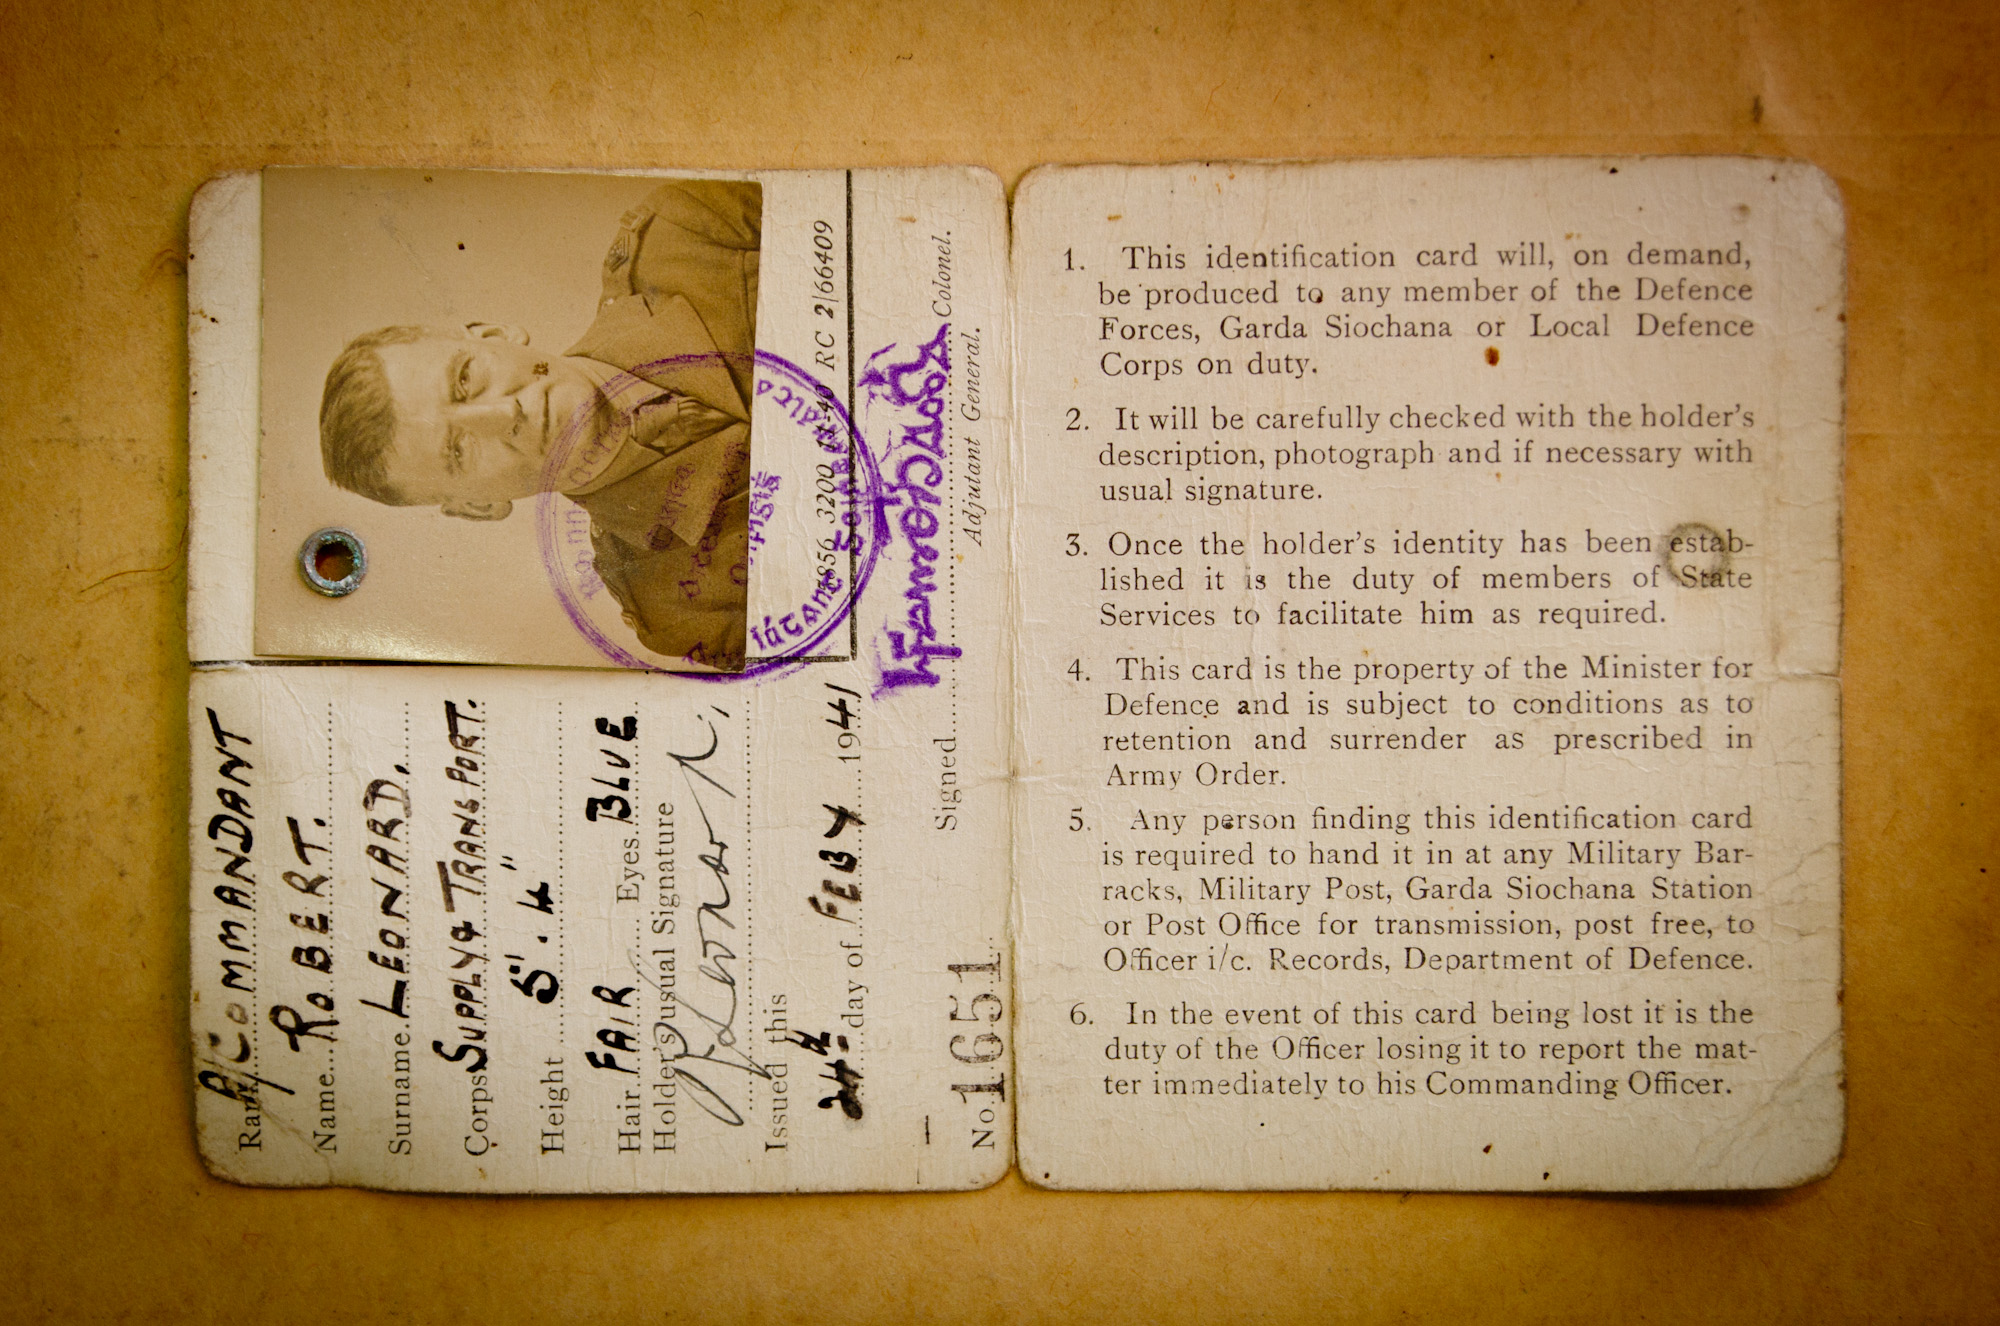 Rank A/COMMANDANT
Name ROBERT.
Surname LEONARD.
Corps SUPPLY & TRANSPORT.
Height 5'. 4"
Hair FAIR Eyes BLUE
Holder's usual Signature
R Leonard,
Issued this
24th day of FEBY 1941
Signed Colonel.
Adjutant General.
No. 1651
RC 2/66409
1. This identification card will, on demand,
be produced to any member of the Defence
Forces, Garda Siochana or Local Defence
Corps on duty.
2. It will be carefully checked with the holder's
description, photograph and if necessary with
usual signature.
3. Once the holder's identity has been estab-
lished it is the duty of members of State
Services to facilitate him as required.
4. This card is the property of the Minister for
Defence and is subject to conditions as to
retention and surrender as prescribed in
Army Order.
5. Any person finding this identification card
is required to hand it in at any Military Bar-
racks, Military Post, Garda Siochana Station
or Post Office for transmission, post free, to
Officer i/c. Records, Department of Defence.
6. In the event of this card being lost it is the
duty of the Officer losing it to report the mat-
ter immediately to his Commanding Officer.